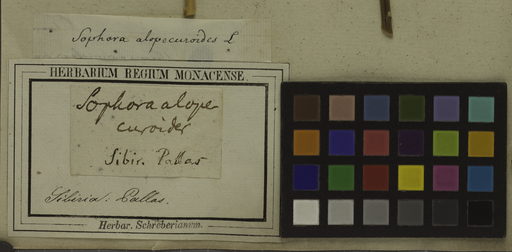 Sophora alopecuroides L
HERBARIUM REGIUM MONACENSE.
Sophora alope-
curoides
Sibir. Pallas
Sibiria. Pallas.
Herbar. Schreberianum.